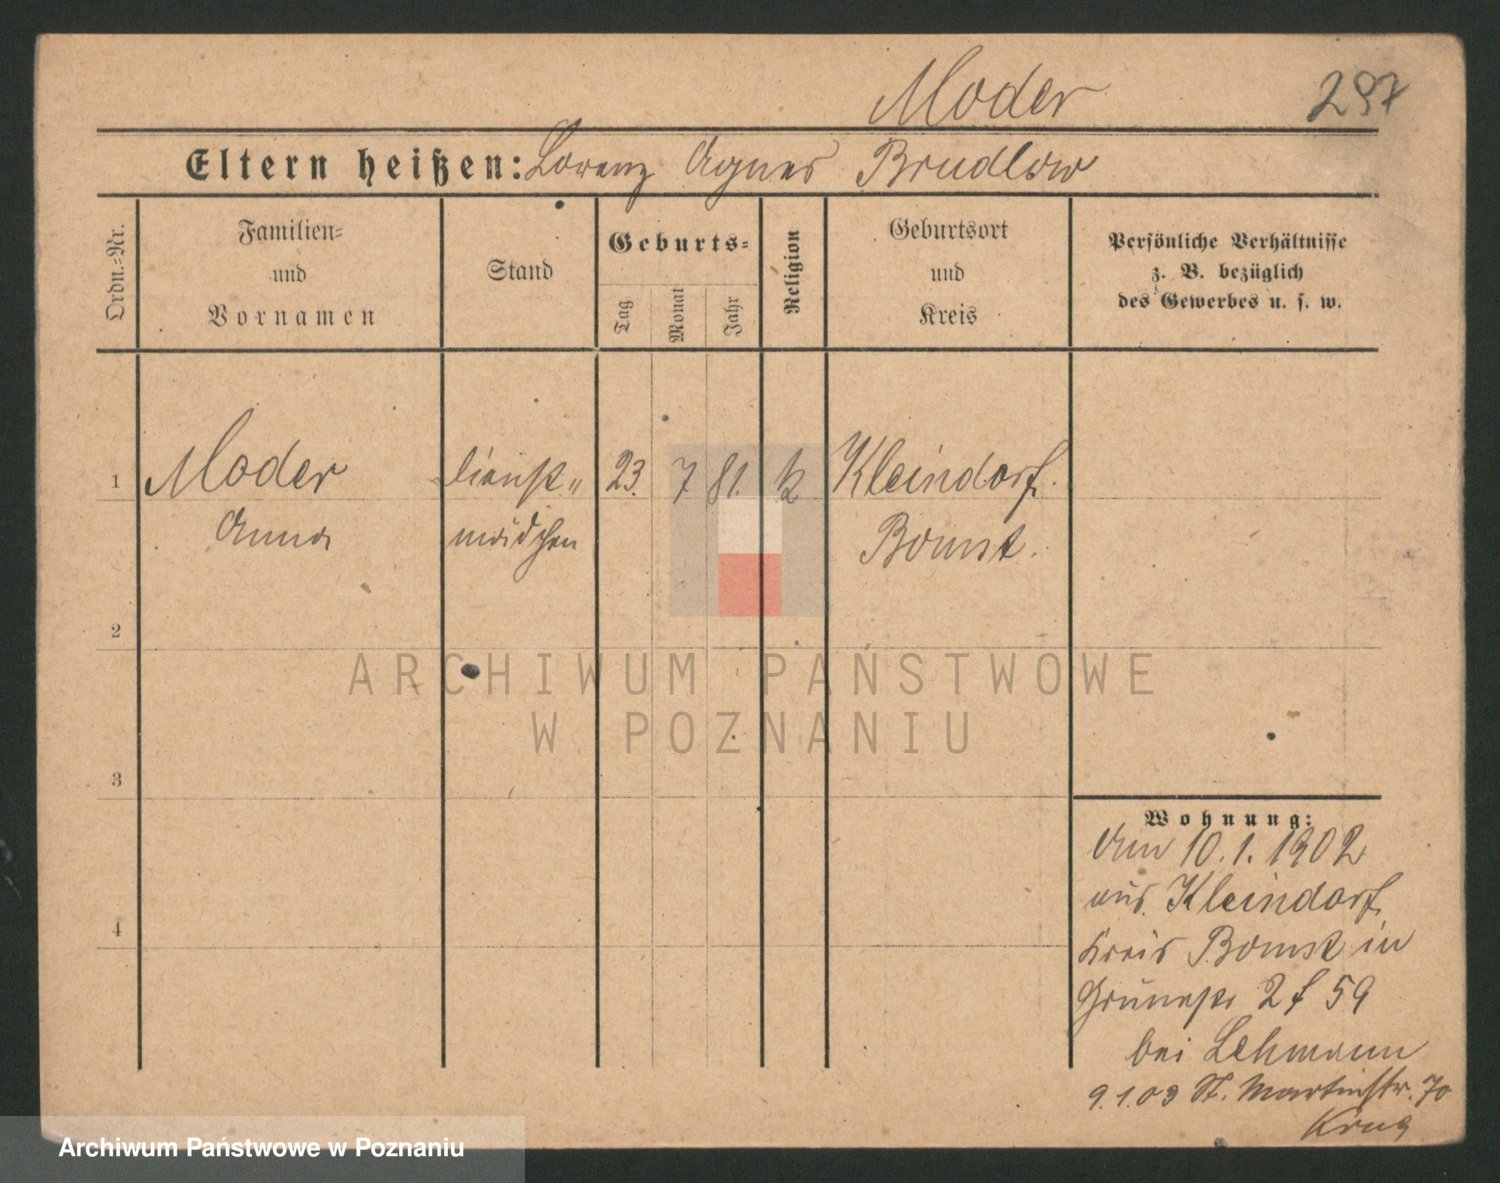 Moder 297
Eltern heißen: Lorenz Agnes Brudlow
Ordn.-Nr.
Familien-
und
Vornamen
Stand
Geburts-
Tag
Monat
Jahr
Religion
Geburtsort
und
Kreis
Persönliche Verhältnisse
z. B. bezüglich
des Gewerbes u. s. w.
1 Moder Dienst- 23. 7 81. k Kleindorf.
Anna mädchen Bomst.
2
3
4
ARCHIWUM PAŃSTWOWE
W POZNANIU
Wohnung:
Am 10.1.1902
aus Kleindorf
Kreis Bomst in
Grünestr 2 59
bei Lehmann
9.1.03 St. Martinstr. 70
Krug
Archiwum Państwowe w Poznaniu